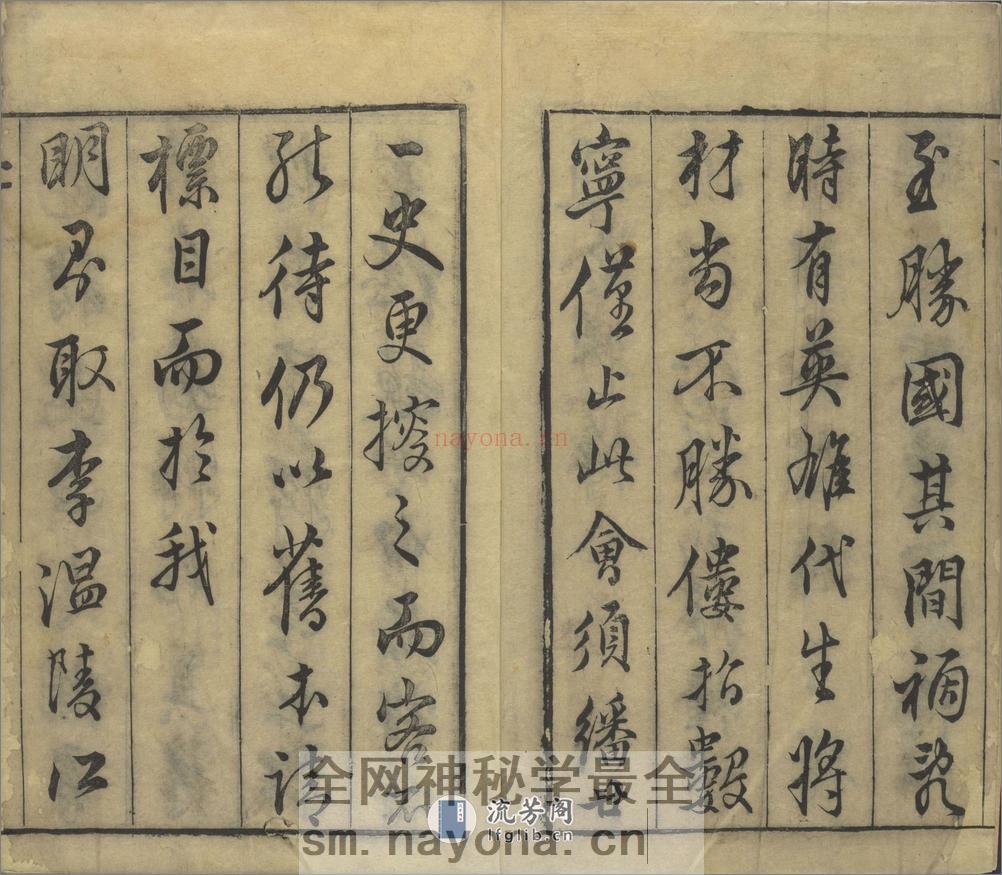 至勝國其間禍亂
時有英雄代生將
材當不勝僂指數
寧僅止此會須繙廿
一史更搜之而客不
能待仍以舊本請
標目而於我
明另取李溫陵江
nayona.cn
全网神秘学最全
流芳阁
lfglib.cn
sm.nayona.cn